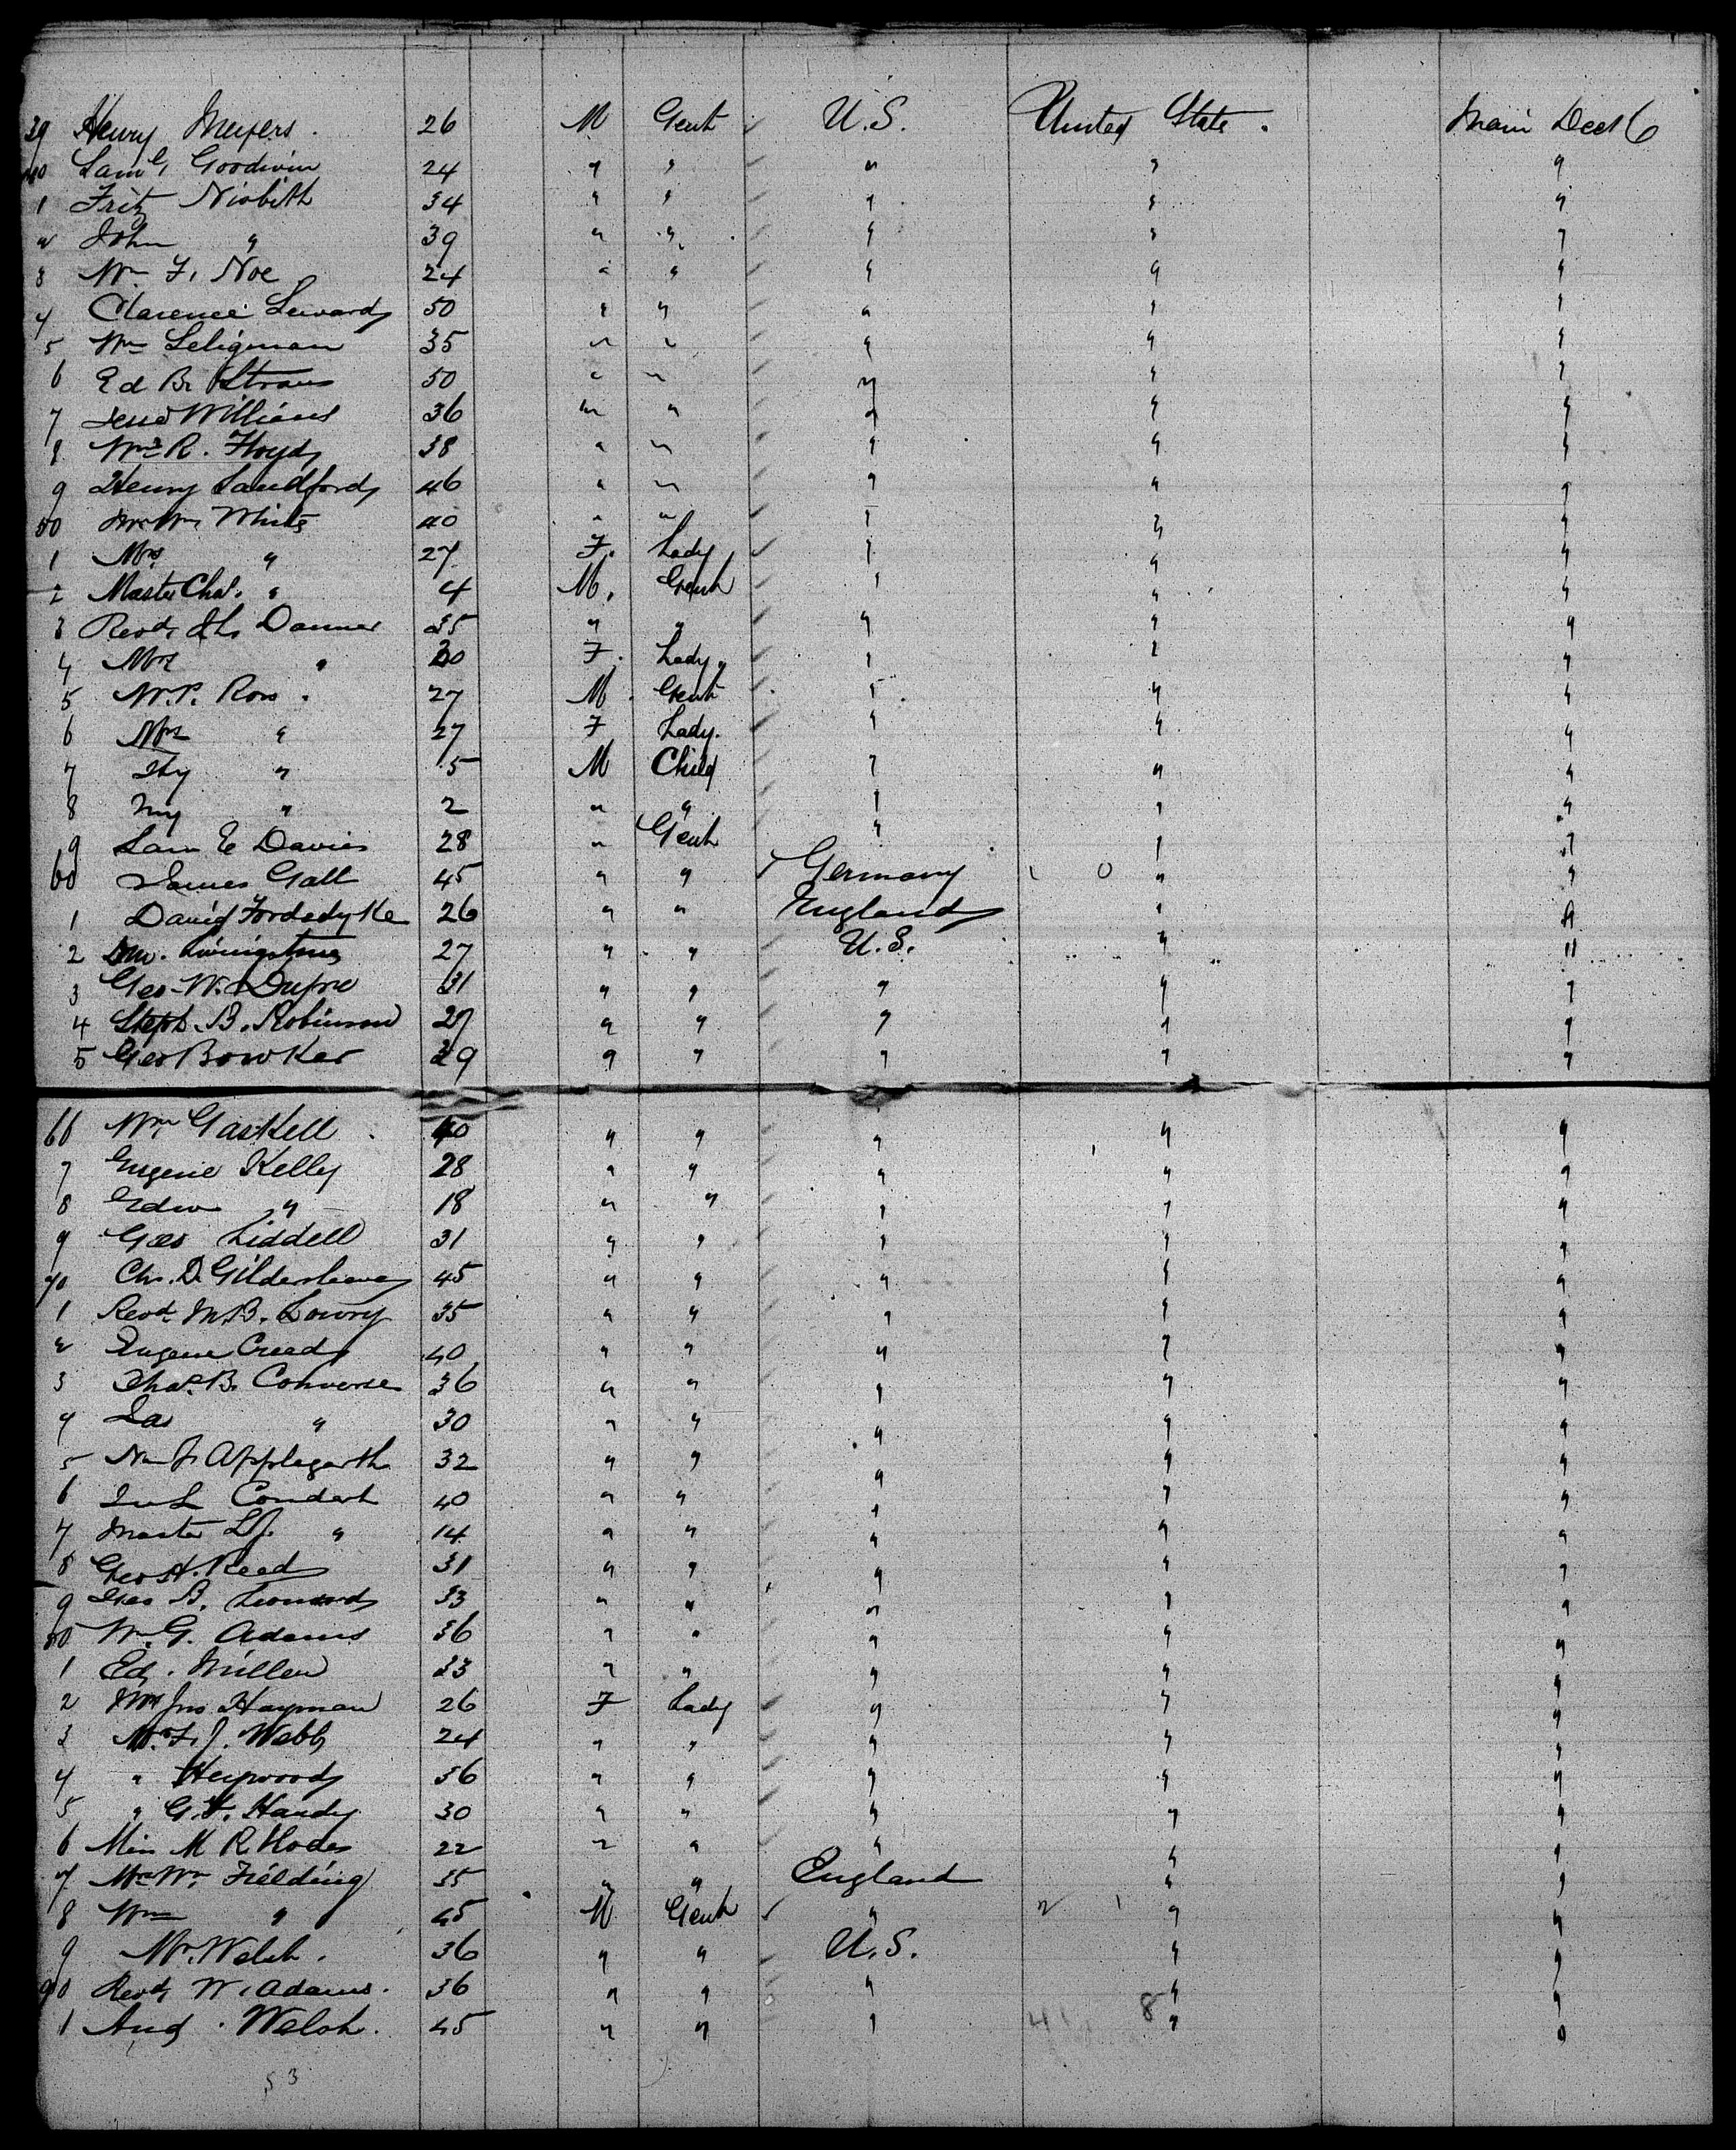 39 Henry Meyers. 26 M Gent U.S. United State. Main Deck
40 Saml G Goodwin 24 " " " " "
1 Fritz Nisbith 34 " " " " "
2 John " 39 " " " " "
3 Wm F. Noe 24 " " " " "
4 Clarence Seward 50 " " " " "
5 Wm Seligman 35 " " " " "
6 Ed B. Straus 50 " " " " "
7 Williams 36 " " " " "
8 Wm R. Floyd 38 " " " " "
9 Henry Sandford 46 " " " " "
50 Mr Wm White 40 " " " " "
1 Mrs " 27 F. Lady " " "
2 Master Chas. " 4 M. Gent " " "
3 Revd Danner 35 " " " " "
4 Mrs " 30 F. Lady " " "
5 W.P. Ross 27 M Gent " " "
6 Mrs " 27 F Lady. " " "
7 " 5 M Child " " "
8 " 2 " " " " "
9 Sam E Davies 28 " Gent " " "
60 James Gall 45 " " Germany " "
1 David 26 " " England " "
2 Livingstone 27 " " U.S. " "
3 Geo. W. Dupre 31 " " " " "
4 Steph. B. Robinson 27 " " " " "
5 Geo Bowker 29 " " " " "
66 Wm Gaskell 40 " " " " "
7 Eugene Kelly 28 " " " " "
8 Edw " 18 " " " " "
9 Geo Liddell 31 " " " " "
70 Chs. D. Gildersleeve 45 " " " " "
1 Revd M.B. Lowry 35 " " " " "
2 Eugene Creed 40 " " " " "
3 Chas. B. Converse 36 " " " " "
4 Jas " 30 " " " " "
5 Applegarth 32 " " " " "
6 40 " " " " "
7 Master " 14 " " " " "
8 Geo H. Reed 31 " " " " "
9 Geo B. Leonard 33 " " " " "
80 Wm G. Adams 36 " " " " "
1 Ed. Miller 33 " " " " "
2 Mrs Jno Hayman 26 F Lady " " "
3 Mrs F. J. Webb 24 " " " " "
4 " Heywood 36 " " " " "
5 " G. F. Handy 30 " " " " "
6 Miss M Rhodes 22 " " " " "
7 Mrs Wm. Fielding 35 " " England " "
8 Wm " 45 M Gent " " "
9 Mr. Welsh. 36 " " U.S. " "
90 Revd W. Adams. 36 " " " " "
1 Aug. Welsh. 45 " " " " "
53